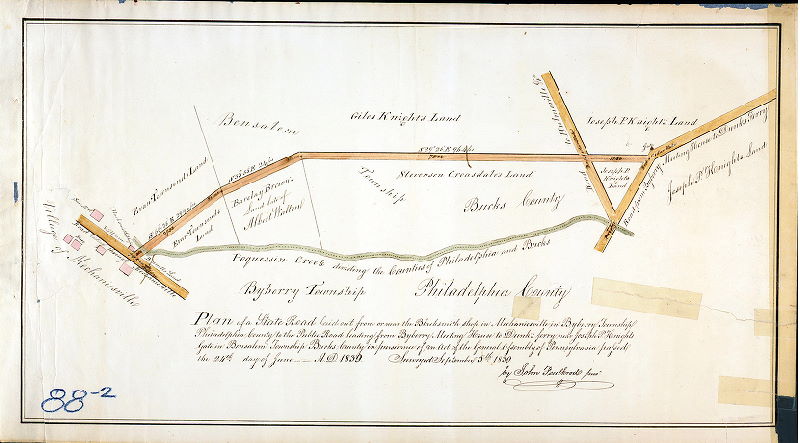 Bensalem
Giles Knights Land
to Hulmeville
Road
Joseph P. Knights Land
Township
Stevenson Croasdales Land
Joseph P. Knights Land
Road from Byberry Meeting House to Dunks Ferry
Joseph P. Knights Land
Evan Townsends Land
Evan Townsends Land
Barclay Brown
Land late of
Albert Walton
Bucks County
Village of Mechanicsville
Poquessin Creek dividing the Counties of Philadelphia and Bucks
Byberry Township
Philadelphia County
Plan of a State Road laid out from or near the Blacksmith shop in Mechanicsville in Byberry Township
Philadelphia County to the Public Road leading from Byberry Meeting House to Dunks ferry near Joseph P. Knights
Gate in Bensalem Township Bucks County in pursuance of an Act of the General Assembly of Pennsylvania passed
the 24th day of June A D 1839 Surveyed September 5th 1839
by John
88-2